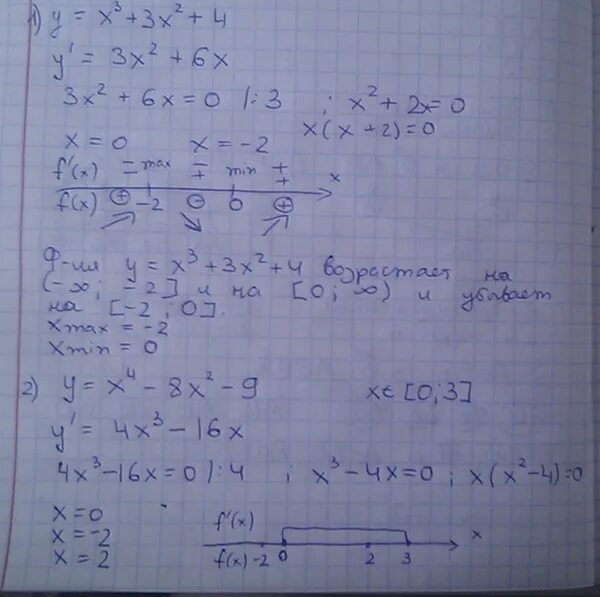 1) y = x³ + 3x² + 4
y' = 3x² + 6x
3x² + 6x = 0 |: 3 ; x² + 2x = 0
x(x + 2) = 0
x = 0 x = -2
f'(x) − − max − + min + + x
f(x) ⊕ -2 ⊖ 0 ⊕
Ф-ия y = x³ + 3x² + 4 возрастает на
(-∞; -2] и на [0; ∞) и убывает
на [-2; 0].
xmax = -2
xmin = 0
2) y = x⁴ - 8x² - 9 x∈[0;3]
y' = 4x³ - 16x
4x³ - 16x = 0 |: 4 ; x³ - 4x = 0 ; x(x² - 4) = 0
x = 0
x = -2
x = 2
f'(x) x
f(x) -2 0 2 3